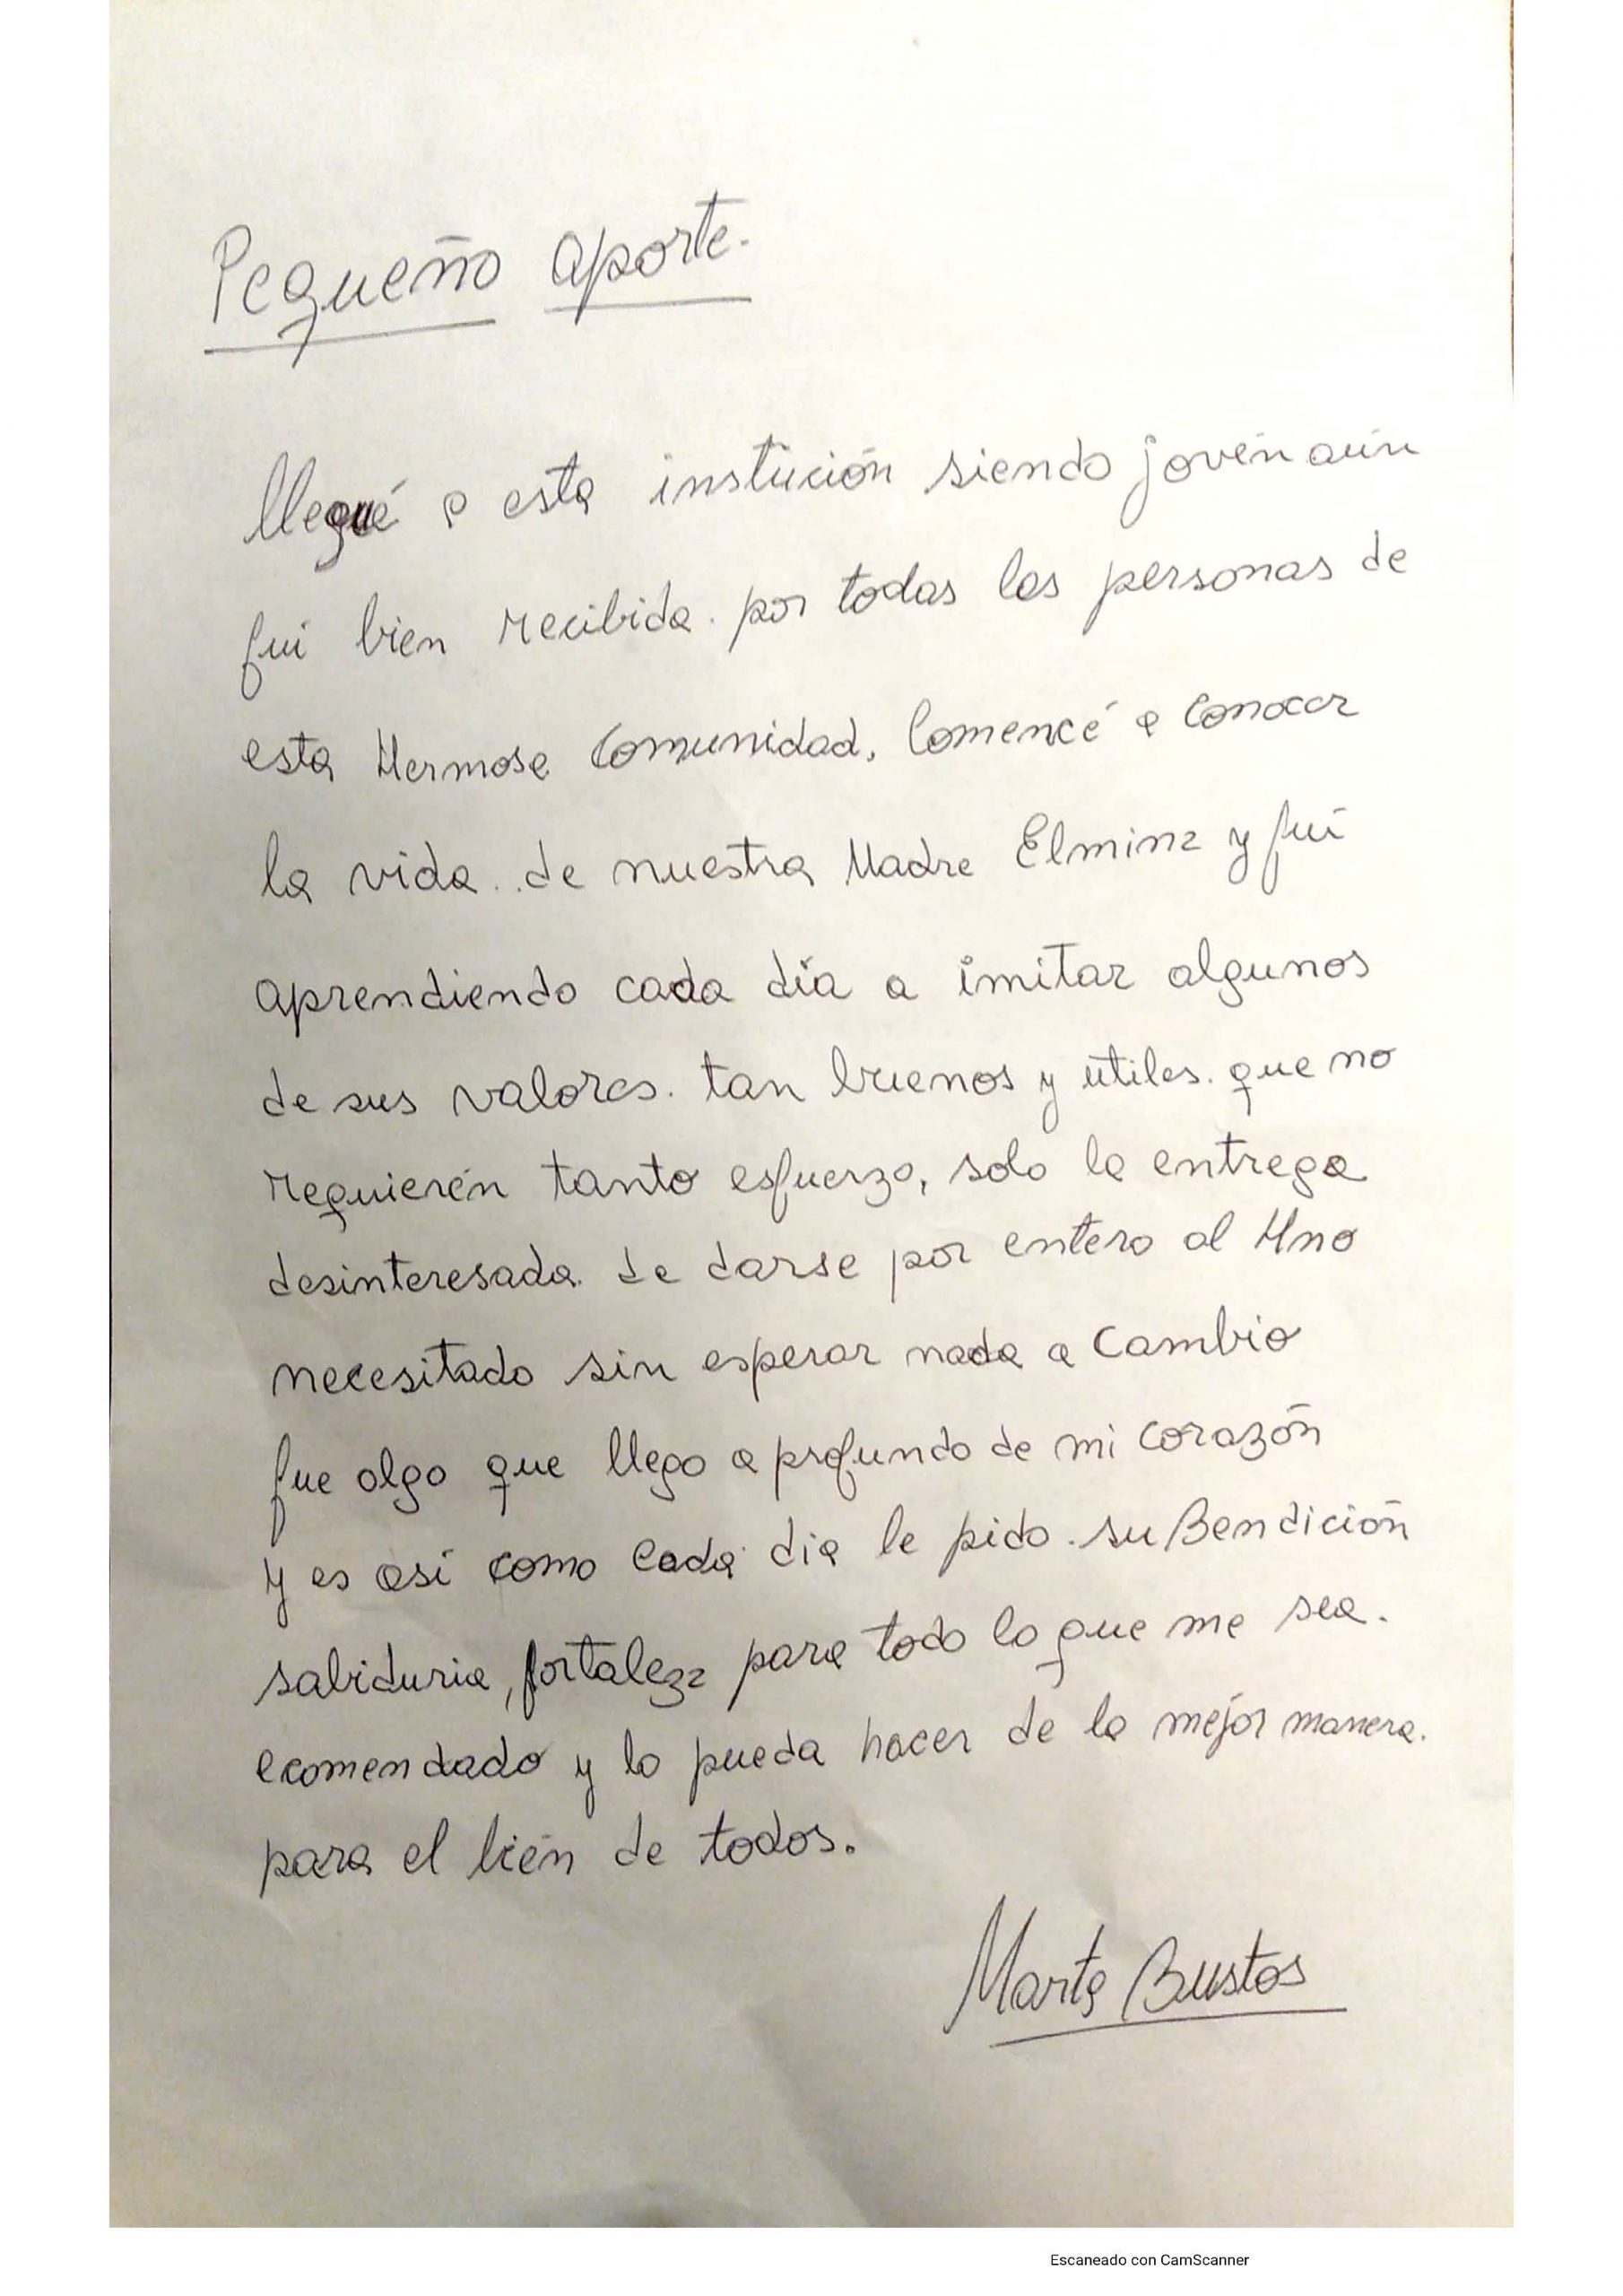 Pequeño aporte.
llegué a esta instución siendo joven aún
fui bien recibida. por todas las personas de
esta Hermosa Comunidad, Comencé a Conocer
la vida. de nuestra Madre Elmina y fui
aprendiendo cada día a imitar algunos
de sus valores. tan buenos y útiles. que no
requieren tanto esfuerzo, solo la entrega
desinteresada. de darse por entero al Hno
necesitado sin esperar nada a Cambio
fue algo que llego a profundo de mi corazón
y es así como Cada dia le pido. su Bendición
sabiduria, fortaleza para todo lo que me sea.
ecomendado y lo pueda hacer de la mejor manera.
para el bien de todos.
Marta Bustos
Escaneado con CamScanner